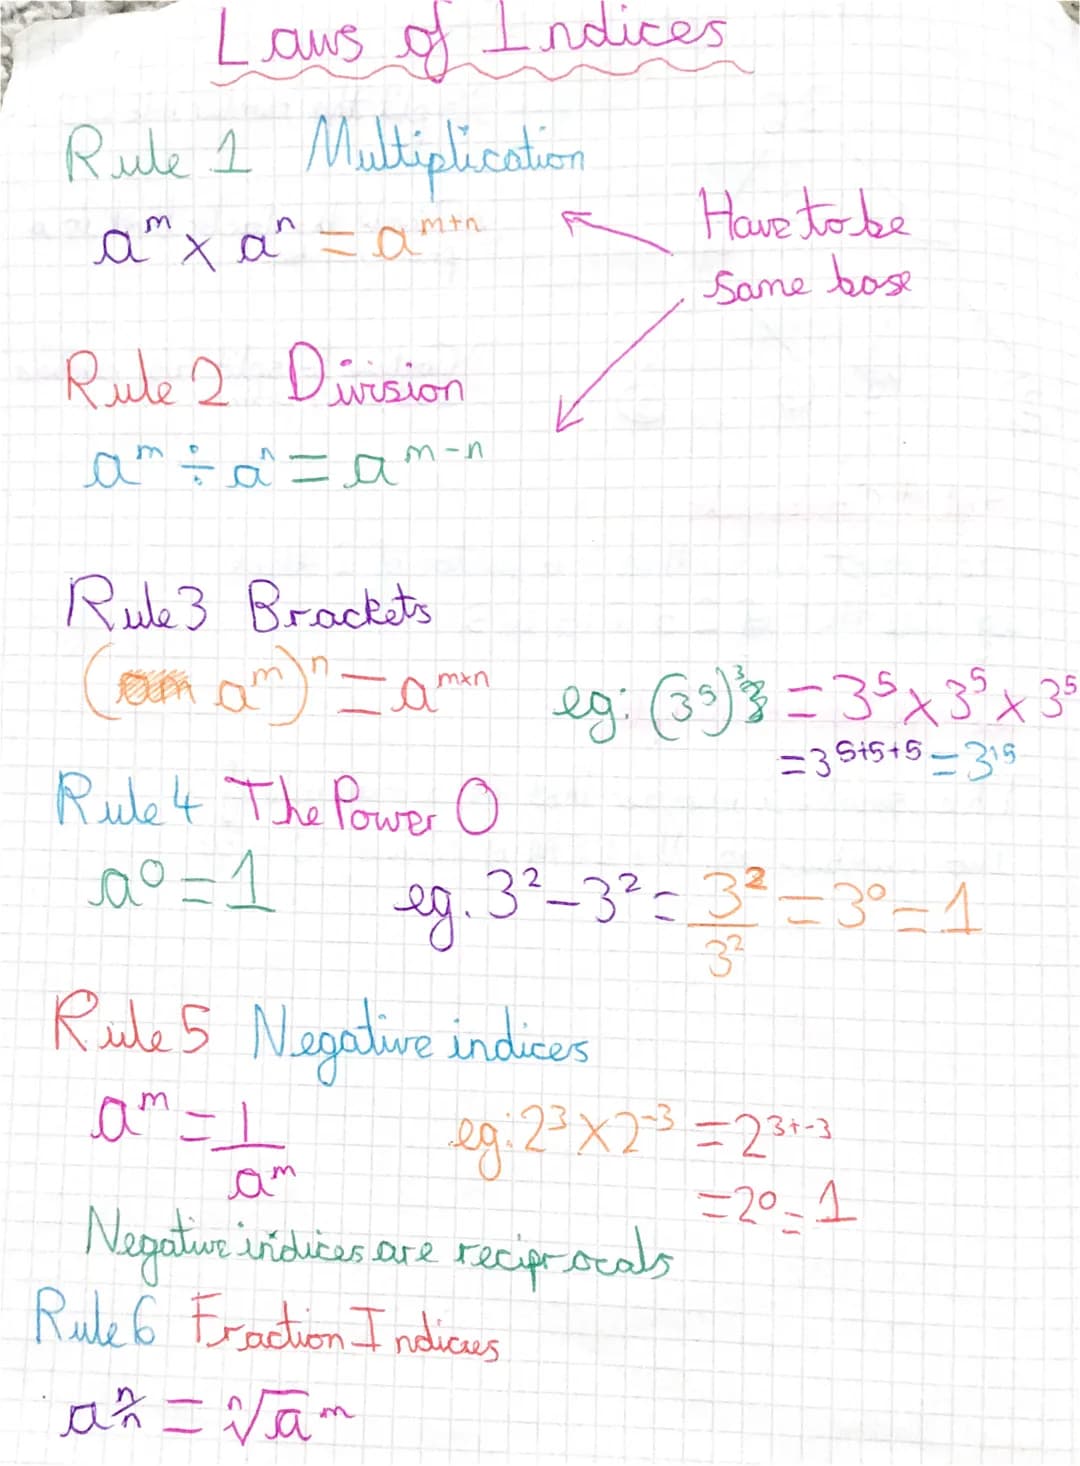 Laws of Indices
Rule 1 Multiplication
aᵐ × aⁿ = aᵐ⁺ⁿ
Have to be
same base
Rule 2 Division
aᵐ ÷ aⁿ = aᵐ⁻ⁿ
Rule 3 Brackets
(aᵐ)ⁿ = aᵐˣⁿ eg: (3⁵)³ = 3⁵ × 3⁵ × 3⁵
= 3⁵⁺⁵⁺⁵ = 3¹⁵
Rule 4 The Power 0
a⁰ = 1 eg. 3² - 3² = 3²/3² = 3⁰ = 1
Rule 5 Negative indices
aᵐ = 1/aᵐ eg: 2³ × 2⁻³ = 2³⁺⁻³
= 2⁰ = 1
Negative indices are reciprocals
Rule 6 Fraction Indices
a^(n/n) = ⁿ√aᵐ